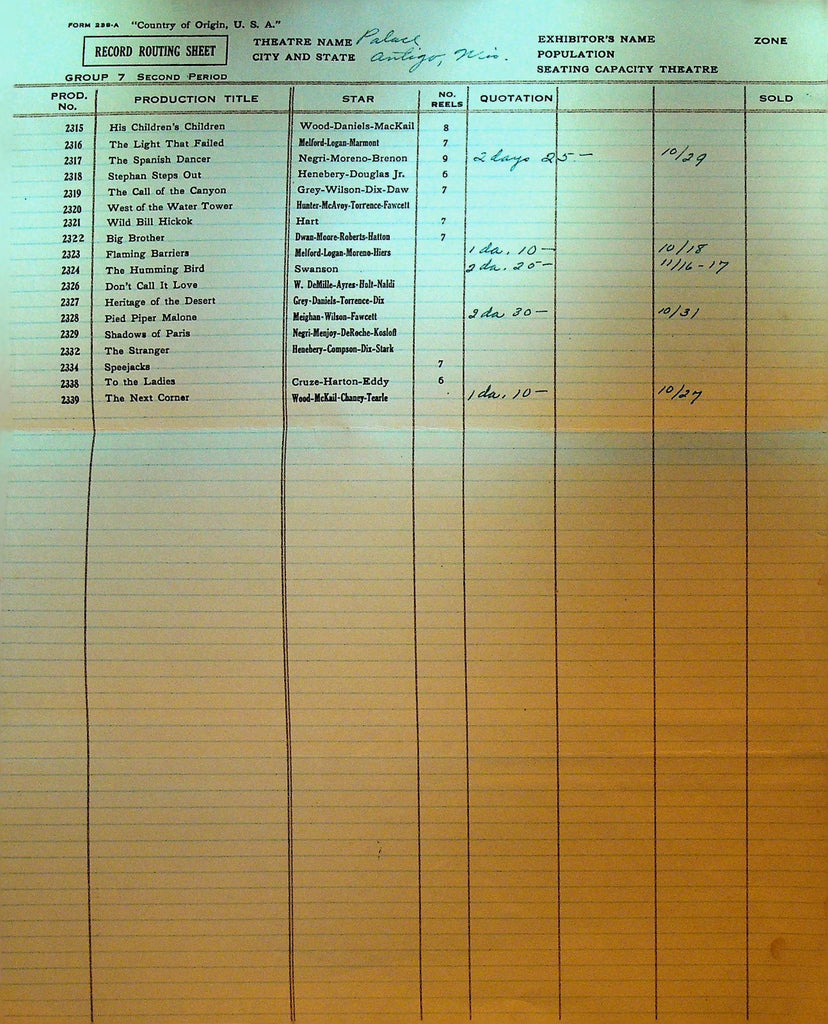 FORM 238-A "Country of Origin, U. S. A."
RECORD ROUTING SHEET
THEATRE NAME Palace
CITY AND STATE Antigo, Wis.
EXHIBITOR'S NAME
POPULATION
SEATING CAPACITY THEATRE
ZONE
GROUP 7 SECOND PERIOD
PROD. No. PRODUCTION TITLE STAR NO. REELS QUOTATION SOLD
2315 His Children's Children Wood-Daniels-MacKail 8
2316 The Light That Failed Melford-Logan-Marmont 7
2317 The Spanish Dancer Negri-Moreno-Brenon 9 2 days 25.— 10/29
2318 Stephan Steps Out Henebery-Douglas Jr. 6
2319 The Call of the Canyon Grey-Wilson-Dix-Daw 7
2320 West of the Water Tower Hunter-McAvoy-Torrence-Fawcett
2321 Wild Bill Hickok Hart 7
2322 Big Brother Dwan-Moore-Roberts-Hatton 7
2323 Flaming Barriers Melford-Logan-Moreno-Hiers 1 da. 10— 10/18
2324 The Humming Bird Swanson 2 da. 25— 11/16-17
2326 Don't Call It Love W. DeMille-Ayres-Holt-Naldi
2327 Heritage of the Desert Grey-Daniels-Torrence-Dix
2328 Pied Piper Malone Meighan-Wilson-Fawcett 2 da 30— 10/31
2329 Shadows of Paris Negri-Menjoy-DeRoche-Kosloff
2332 The Stranger Henebery-Compson-Dix-Stark
2334 Speejacks 7
2338 To the Ladies Cruze-Harton-Eddy 6
2339 The Next Corner Wood-McKail-Chaney-Tearle 1 da. 10— 10/27